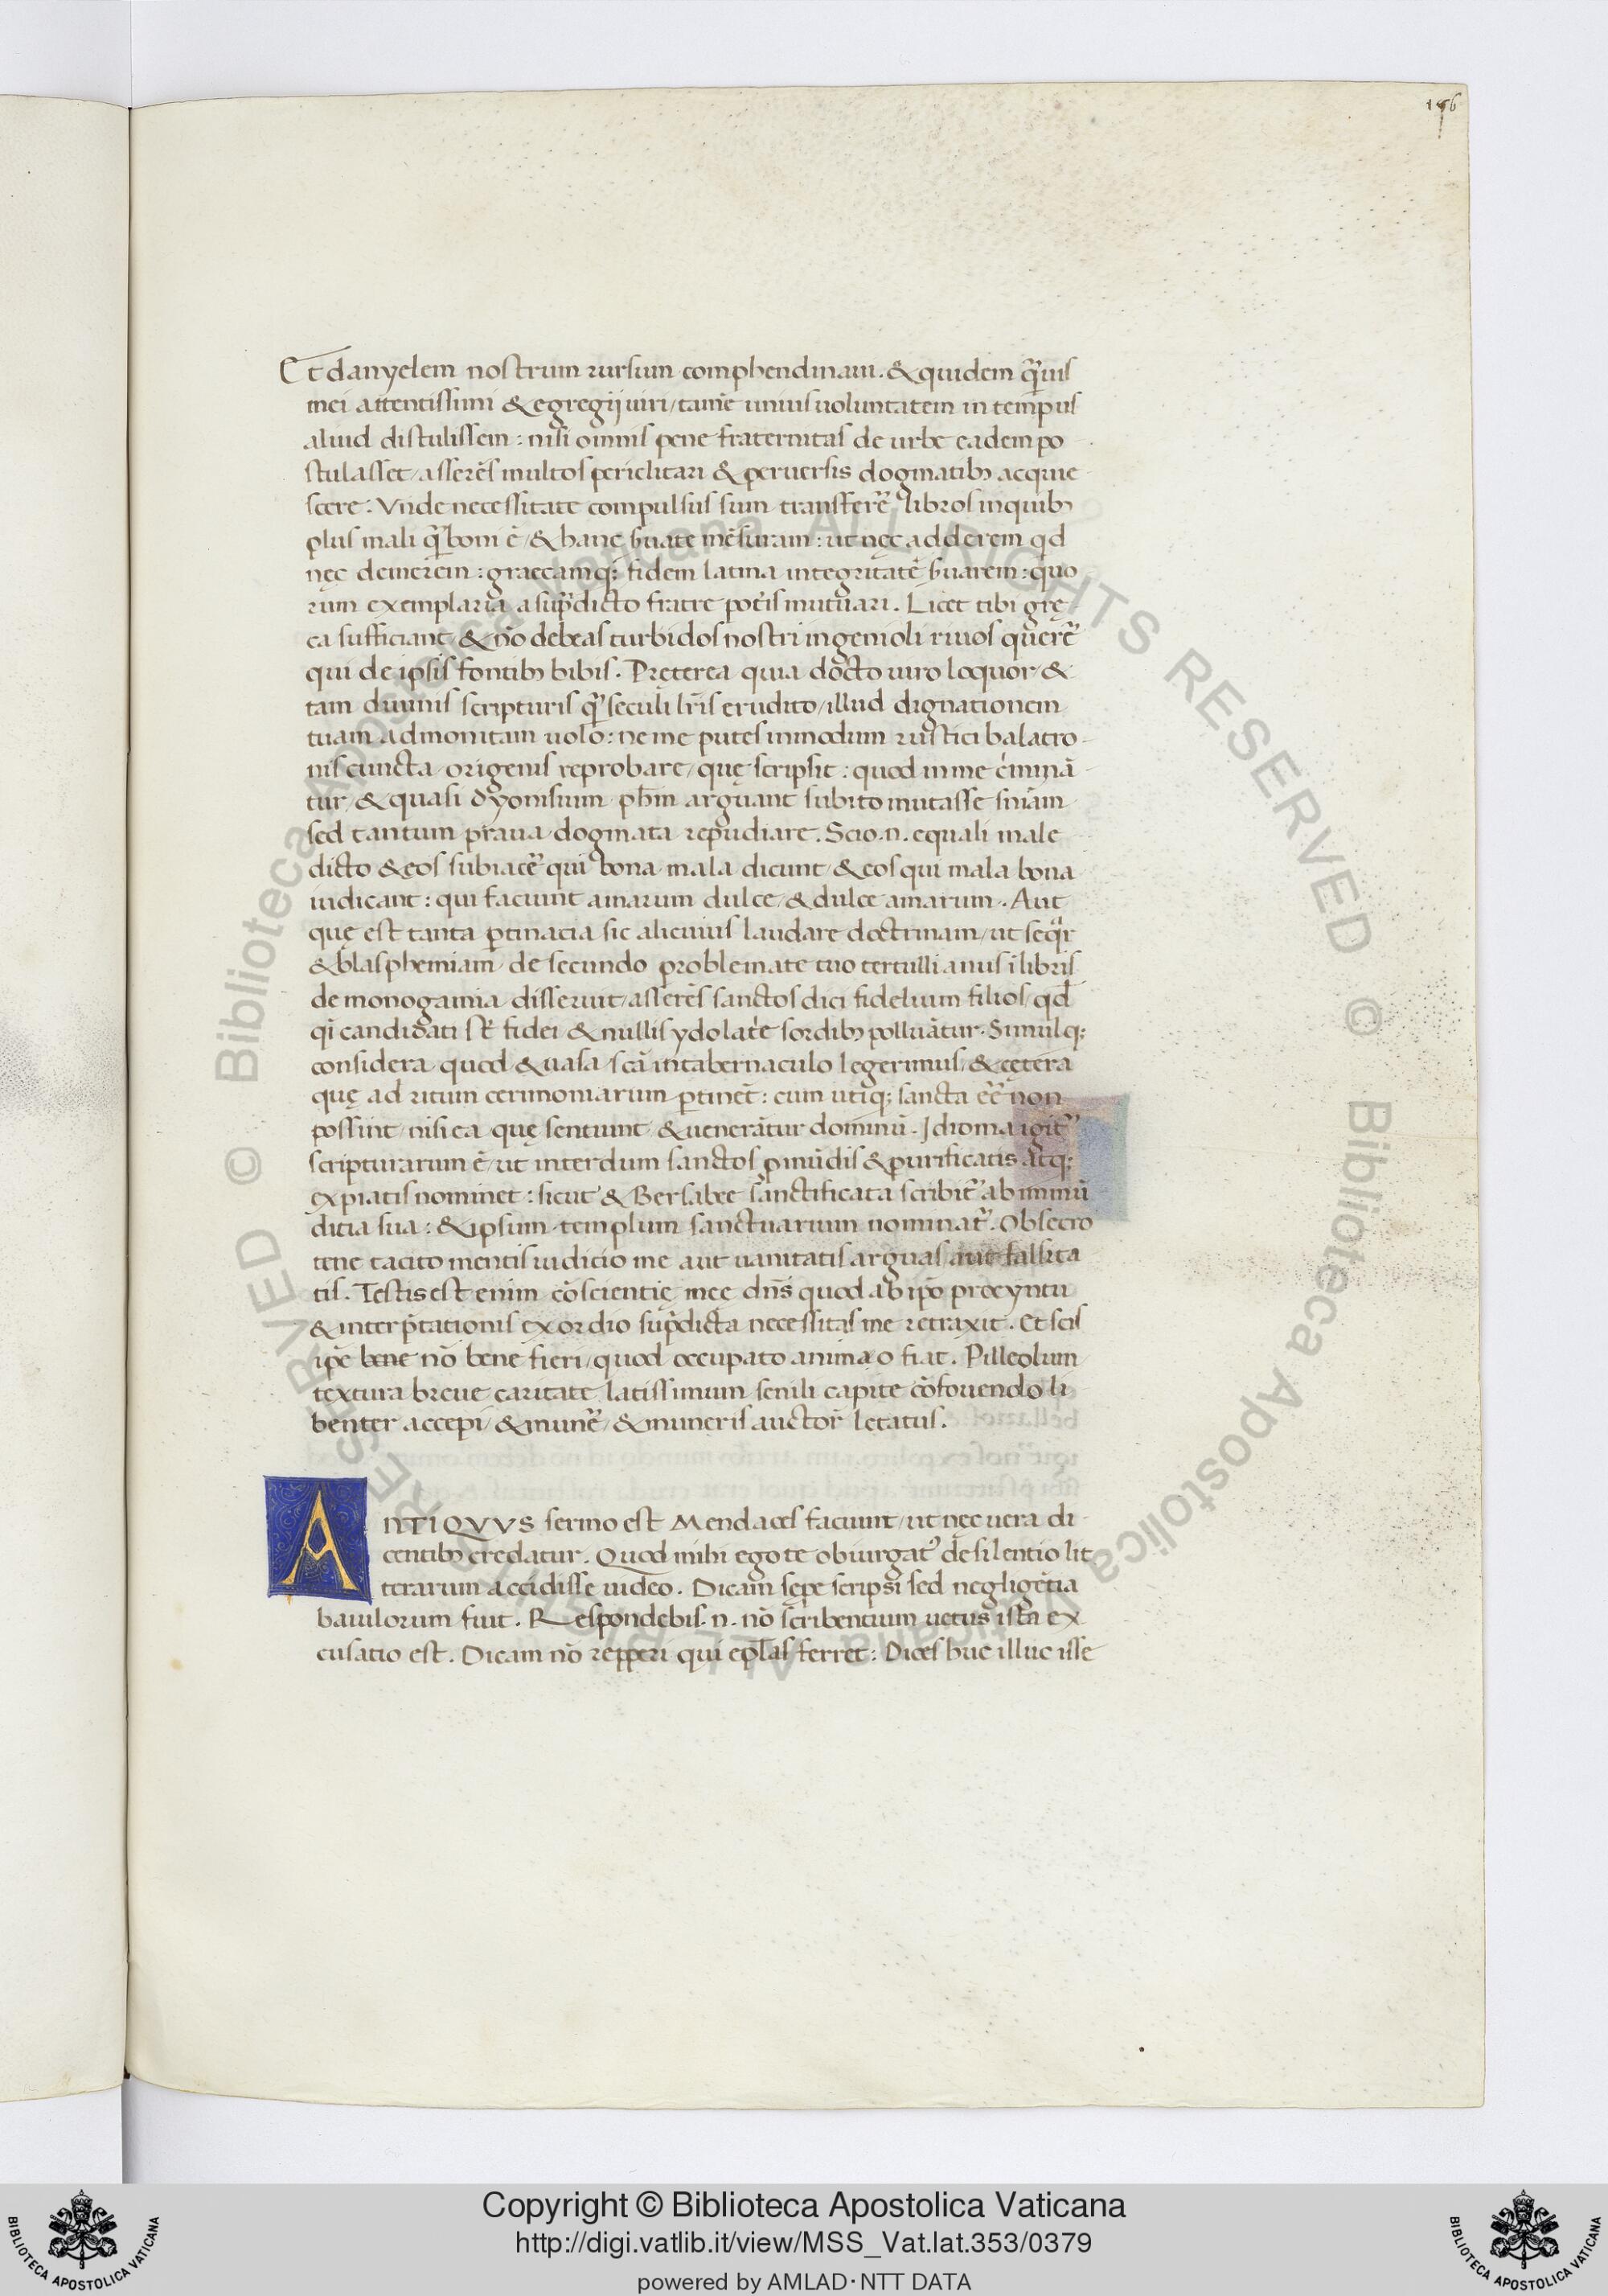 176
Et danyelem nostrum rursum comphendinaui. & quidem q̃uis
mei attentissimi & egregij uiri/ tam̄e unius uoluntatem in tempus
aluid distulissem: nisi omnis pene fraternitas de urbe eadem po
stulasset/ asserēs multos periclitari & peruersis dogmatibꝫ acquie
scere: Vnde necessitate compulsus sum transferr̃ libros inquibꝫ
plus mali q̃ boni ē/ & hanc ẜuare mēsuram: ut nęc adderem qd̄
nęc demerem: graecamqꝫ fidem latina integritatē ẜuarem: quo
rum exemplaria a sup̃dicto fratre pot̃is mutuari. Licet tibi grę
ca sufficiant/ & nō debeas turbidos nostri ingenioli riuos querer̃
qui de ipsis fontibꝫ bibis. Pręterea quia docto uiro loquor/ &
tam diuinis scripturis q̃ seculi lr̄is erudito/ illud dignationem
tuam admonitam uolo: ne me putes inmodum rustici balatro
nis cuncta origenis reprobare/ quę scripsit: quod in me c̓iminā
tur/ & quasi dyonisium ph̄m arguant subito mutasse sn̄iam
sed tantum praua dogmata repudiare. Scio .n. equali male
dicto & eos subiacer̃ qui bona mala dicunt/ & eos qui mala bona
iudicant: qui faciunt amarum dulce/ & dulce amarum. Aut
quę est tanta ꝑtinacia sic alicuius laudare doctrinam/ ut seqr̃
& blasphemiam de secundo problemate tuo tertullianus ī libris
de monogamia disseruit/ asserēs sanctos dici fidelium filios/ qd̄
qī candidati st̄ fidei & nullis ydolatr̓e sordibꝫ polluātur. Simulqꝫ
considera quod & uasa scā in tabernaculo legerimus/ & cętera
quę ad ritum cerimoniarum ꝑtinēt: cum utiqꝫ sancta eēr̃ non
possint nisi ea quę sentiunt & uenerātur dominū. Idioma igit̃
scripturarum ē/ ut interdum sanctos ꝓ mūdis & purificatis atqꝫ
expiatis nominet: sicut & Bersabee sanctificata scribit̃ ab inmū
dicia sua: & ipsum templum sanctuarium nominat̃. Obsecro
te ne tacito mentis iudicio me aut uanitatis arguas aut falsita
tis. Testis est enim cōscientię mee dn̄s quod ab ip̄o procyntu
& interp̃tationis exordio sup̃dicta necessitas me retraxit. Et scis
ip̄e bene nō bene fieri/ quod occupato animao fiat. Pilleolum
textura breue caritate latissimum senili capite cōfouendo li
benter accepi & muner̃/ & muneris auctor̃ letatus.
ANTIQVVS sermo est Mendaces faciunt/ ut nęc uera di
centibꝫ credatur. Quod mihi ego te obiurgat̃ de silentio lit
terarum accidisse uideo. Dicam sępe scripsi sed negligētia
baiulorum fuit. Respondebis .n. nō scribentium uetus ista ex
cusatio est. Dicam nō repperi qui epl̄as ferret: Dices huc illuc isse
© Biblioteca Apostolica Vaticana ALL RIGHTS RESERVED © Biblioteca Apostolica Vaticana ALL RIGHTS RESERVED
BIBLIOTECA APOSTOLICA VATICANA
Copyright © Biblioteca Apostolica Vaticana
http://digi.vatlib.it/view/MSS_Vat.lat.353/0379
powered by AMLAD·NTT DATA
BIBLIOTECA APOSTOLICA VATICANA